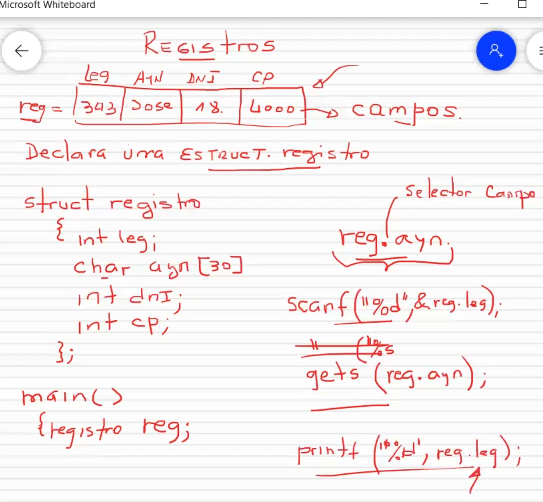 Microsoft Whiteboard
REGISTROS
Leg AYN DNI CP
reg = 343 Jose 18. 4000 → campos.
Declara una ESTRUCT. registro
struct registro
{ int leg;
char ayn [30]
int dnI;
int cp;
};
main()
{registro reg;
Selector Campo
reg.ayn.
scanf("%d",&reg.leg);
" ("%s
gets (reg.ayn);
printf ("%d", reg.leg);